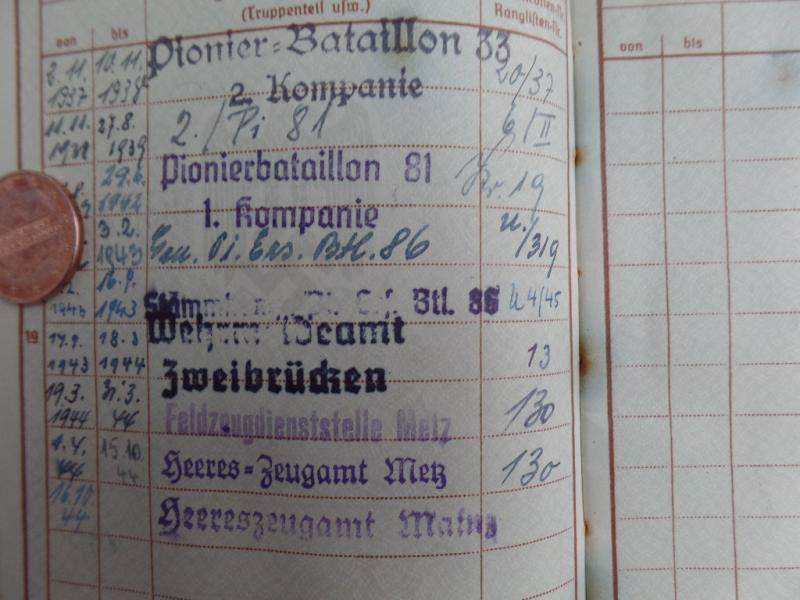 (Truppenteil usw.)
Ranglisten-Nr.
von bis
von bis
2.11. 10.11. Pionier-Bataillon 33
1937 1938 2. Kompanie 20/37
11.11. 27.8. 2./Pi 81 6/II
1938 1939
29.6. Pionierbataillon 81 Nr. 19
1942 1. Kompanie
3.2. Gen. Pi. Ers. Btl. 86 u./319
1943
16.9. Btl. 86 4/45
1943 1943
19 17.9. 18.3 Wehrm
1943 1944 Zweibrücken 13
19.3. 31.3. Feldzeugdienststelle Metz 130
1944 44
1.4. 15.10. Heeres-Zeugamt Metz 130
44 44
16.10. Heereszeugamt Mainz
44